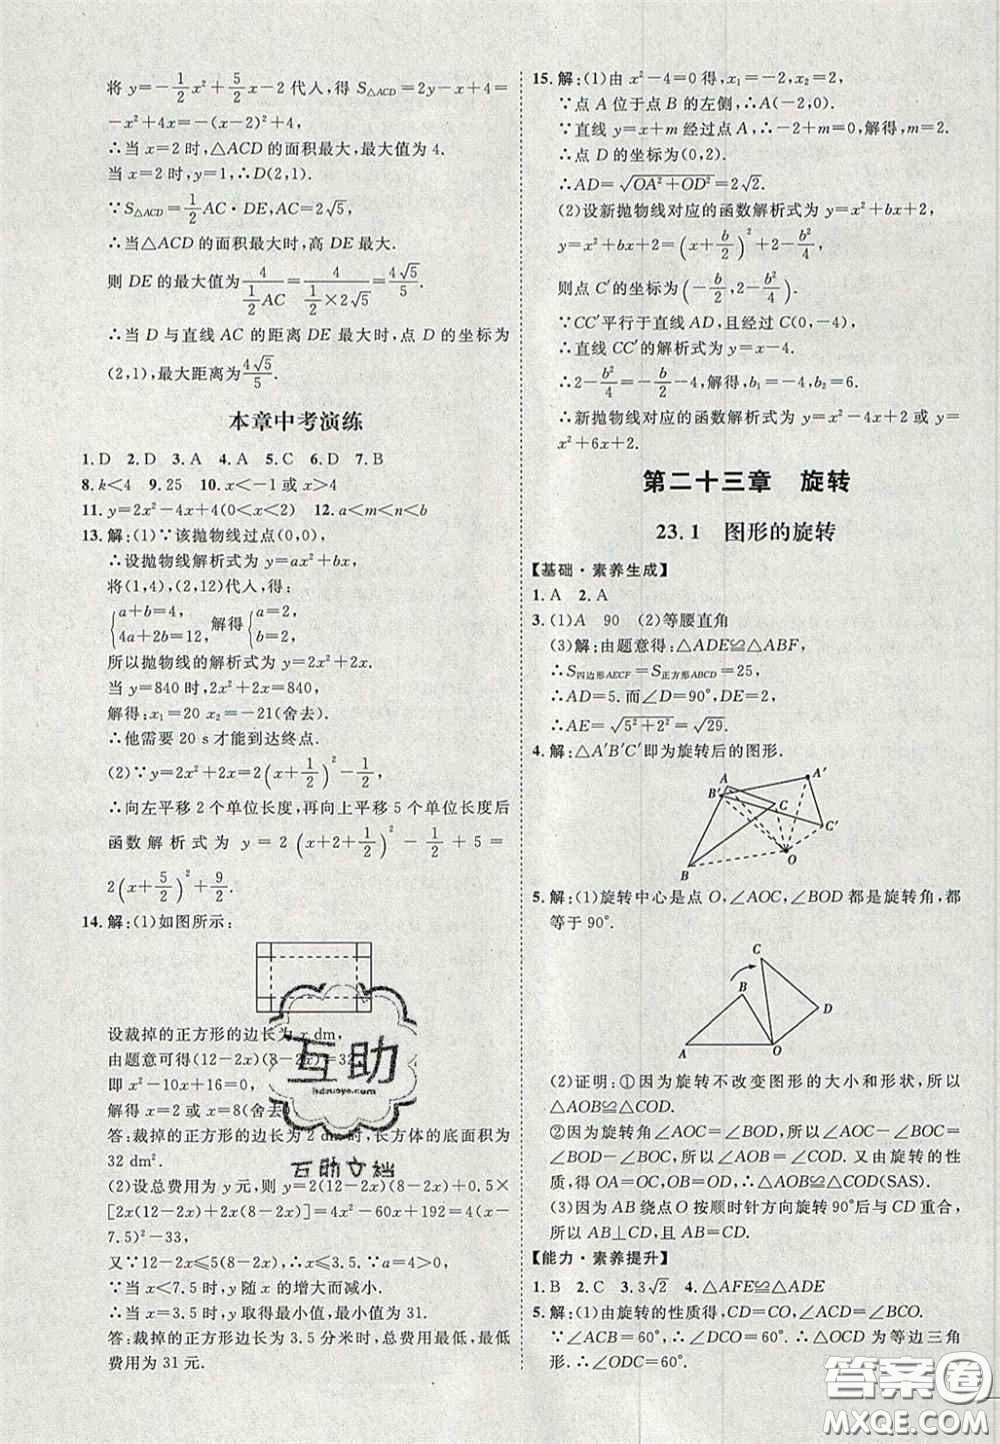 将 y=-1/2x²+5/2x-2 代人,得 S△ACD=2y-x+4=
-x²+4x=-(x-2)²+4,
∴当 x=2 时,△ACD 的面积最大,最大值为 4.
当 x=2 时,y=1,∴D(2,1).
∵S△ACD=1/2AC·DE,AC=2√5,
∴当△ACD 的面积最大时,高 DE 最大.
则 DE 的最大值为 4/(1/2AC)=4/(1/2×2√5)=4√5/5.
∴当 D 与直线 AC 的距离 DE 最大时,点 D 的坐标为
(2,1),最大距离为4√5/5.
本章中考演练
1.D 2.D 3.A 4.A 5.C 6.D 7.B
8.k<4 9.25 10.x<-1 或 x>4
11.y=2x²-4x+4(0<x<2) 12.a<m<n<b
13.解:(1)∵该抛物线过点(0,0),
∴设抛物线解析式为 y=ax²+bx,
将(1,4),(2,12)代人,得:
{a+b=4, 4a+2b=12, 解得{a=2, b=2.
所以抛物线的解析式为 y=2x²+2x.
当 y=840 时,2x²+2x=840,
解得:x₁=20 x₂=-21(舍去).
∴他需要 20 s才能到达终点.
(2)∵y=2x²+2x=2(x+1/2)²-1/2,
∴向左平移 2 个单位长度,再向上平移 5 个单位长度后
函数解析式为 y=2(x+2+1/2)²-1/2+5=
2(x+5/2)²+9/2.
14.解:(1)如图所示:
设裁掉的正方形的边长为 x dm,
由题意可得(12-2x)(8-2x)=32,
即 x²-10x+16=0,
解得 x=2 或 x=8(舍去).
答:裁掉的正方形的边长为 2 dm,长方体的底面积为
32 dm².
(2)设总费用为 y元,则 y=2(12-2x)(8-2x)+0.5×
[2x(12-2x)+2x(8-2x)]=4x²-60x+192=4(x-
7.5)²-33,
又∵12-2x≤5(8-2x),∴x≤3.5,∵a=4>0,
∴当 x<7.5 时,y随 x 的增大而减小.
∴当 x=3.5 时,y取得最小值,最小值为 31.
答:裁掉的正方形边长为 3.5 分米时,总费用最低,最低
费用为 31 元.
互助
hdzuoye.com
互助文档
15.解:(1)由 x²-4=0 得,x₁=-2,x₂=2,
∵点 A 位于点 B 的左侧,∴A(-2,0).
∵直线 y=x+m 经过点 A,∴-2+m=0,解得,m=2.
∴点 D 的坐标为(0,2).
∴AD=√(OA²+OD²)=2√2.
(2)设新抛物线对应的函数解析式为 y=x²+bx+2,
y=x²+bx+2=(x+b/2)²+2-b²/4,
则点 C′的坐标为(-b/2,2-b²/4).
∵CC′平行于直线 AD,且经过 C(0,-4),
∴直线 CC′的解析式为 y=x-4.
∴2-b²/4=-b/2-4.解得,b₁=-4,b₂=6.
∴新抛物线对应的函数解析式为 y=x²-4x+2 或 y=
x²+6x+2.
第二十三章 旋转
23.1 图形的旋转
【基础·素养生成】
1.A 2.A
3.(1)A 90 (2)等腰直角
(3)解:由题意得:△ADE≌△ABF.
∴S四边形AECF=S正方形ABCD=25,
∴AD=5.而∠D=90°,DE=2,
∴AE=√(5²+2²)=√29.
4.解:△A′B′C′即为旋转后的图形.
A
A′
B′
C
C′
O
B
5.解:(1)旋转中心是点 O,∠AOC,∠BOD 都是旋转角,都
等于 90°.
C
B
D
A
O
(2)证明:①因为旋转不改变图形的大小和形状,所以
△AOB≌△COD.
②因为旋转角∠AOC=∠BOD,所以∠AOC-∠BOC=
∠BOD-∠BOC,即∠AOB=∠COD.又由旋转的性
质,得 OA=OC,OB=OD,∴△AOB≌△COD(SAS).
(3)因为 AB 绕点 O 按顺时针方向旋转 90°后与 CD 重合,
所以 AB⊥CD,且 AB=CD.
【能力·素养提升】
1.B 2.C 3.3√2 4.△AFE≌△ADE
5.解:(1)由旋转的性质得,CD=CO,∠ACD=∠BCO.
∵∠ACB=60°,∴∠DCO=60°,∴△OCD 为等边三角
形.∴∠ODC=60°.
答案圈
MXQE.COM